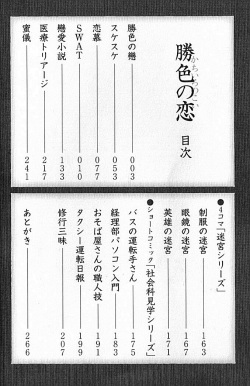 勝色の恋
かちいろのこい
目次
勝色の戀 003
スケスケ 053
恋幕 077
SWAT 010
戀愛小説 133
医療トリアージ 217
蜜儀 241
●4コマ「迷宮シリーズ」
制服の迷宮 163
眼鏡の迷宮 167
英雄の迷宮 171
●ショートコミック「社会科見学シリーズ」
バスの運転手さん 175
経理部パソコン入門 183
おそば屋さんの職人技 191
タクシー運転日報 199
修行三昧 207
あとがき 266